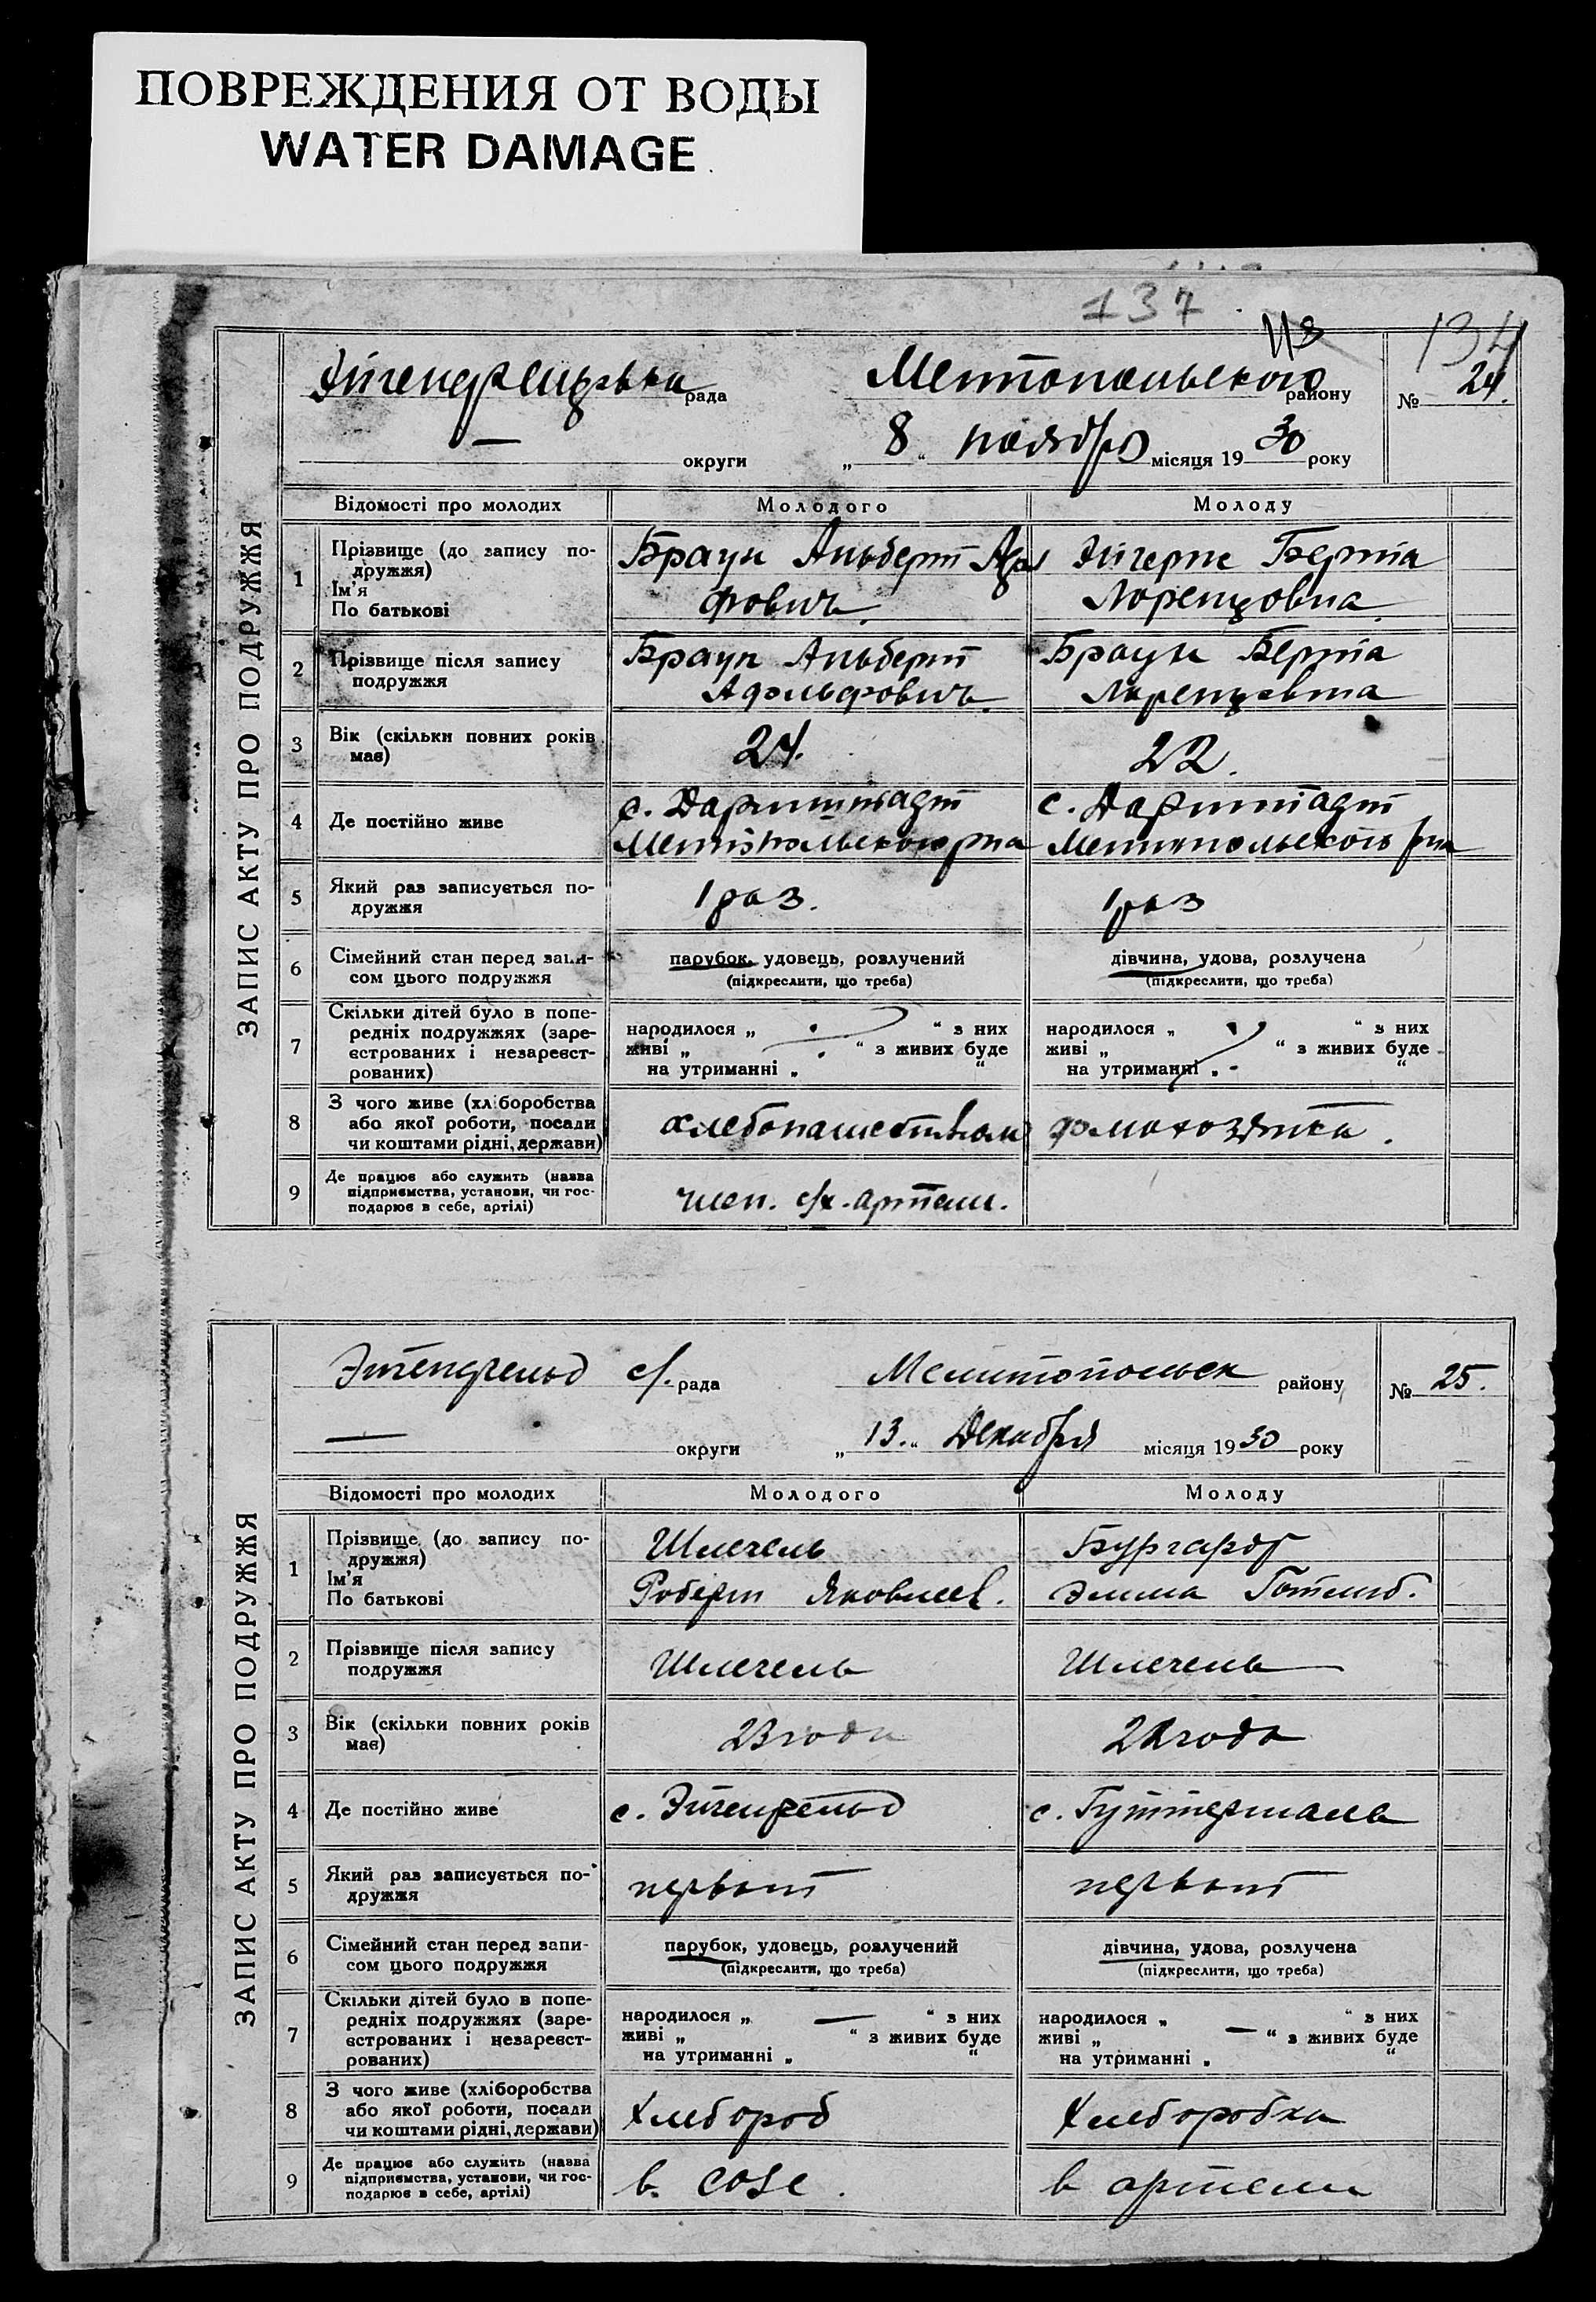 ПОВРЕЖДЕНИЯ ОТ ВОДЫ
WATER DAMAGE
137
134
ЗАПИС АКТУ ПРО ПОДРУЖЖЯ
рада Мелітопольского району № 24.
— округи „ 8 “ ноября місяця 1930 року
Відомості про молодих Молодого Молоду
1 Прізвище (до запису по-
дружжя)
Ім'я
По батькові
Браун Альберт Адол
фович. Берта
Лоренцовна
2 Прізвище після запису
подружжя
Браун Альберт
Адольфович. Браун Берта
Лоренцовна
3 Вік (скільки повних років
має) 24. 22.
4 Де постійно живе
с. Дармштадт
Мелітопольского рна с. Дармштадт
Мелитопольского рна
5 Який раз записується по-
дружжя 1 раз. 1 раз
6 Сімейний стан перед запи-
сом цього подружжя
парубок, удовець, розлучений
(підкреслити, що треба)
дівчина, удова, розлучена
(підкреслити, що треба)
7 Скільки дітей було в попе-
редніх подружжях (заре-
єстрованих і незареєст-
рованих)
народилося „ “ з них
живі „ “ з живих буде
на утриманні „ “
народилося „ “ з них
живі „ “ з живих буде
на утриманні „ “
8 З чого живе (хліборобства
або якої роботи, посади
чи коштами рідні, держави)
хлебопашеством домохозяйка.
9 Де працює або служить (назва
підприємства, установи, чи гос-
подарює в себе, артілі)
член. с/х. артели.
ЗАПИС АКТУ ПРО ПОДРУЖЖЯ
Эйгенфельд с/. рада Мелитопольск району № 25.
— округи „ 13. “ Декабря місяця 1930 року
Відомості про молодих Молодого Молоду
1 Прізвище (до запису по-
дружжя)
Ім'я
По батькові
Шлегель
Роберт Яковлев. Бургардт
Эмма Готлиб.
2 Прізвище після запису
подружжя Шлегель Шлегель
3 Вік (скільки повних років
має) 23 года 22 года
4 Де постійно живе с. Эйгенфельд с. Гуттерталь
5 Який раз записується по-
дружжя первый первый
6 Сімейний стан перед запи-
сом цього подружжя
парубок, удовець, розлучений
(підкреслити, що треба)
дівчина, удова, розлучена
(підкреслити, що треба)
7 Скільки дітей було в попе-
редніх подружжях (заре-
єстрованих і незареєст-
рованих)
народилося „ — “ з них
живі „ “ з живих буде
на утриманні „ “
народилося „ “ з них
живі „ — “ з живих буде
на утриманні „ “
8 З чого живе (хліборобства
або якої роботи, посади
чи коштами рідні, держави)
Хлебороб Хлеборобка
9 Де працює або служить (назва
підприємства, установи, чи гос-
подарює в себе, артілі)
в созе. в артели